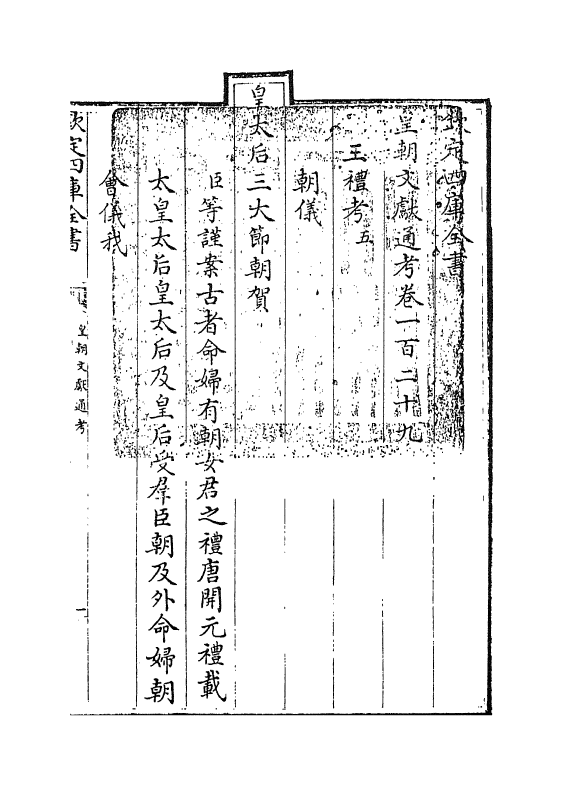 欽定四庫全書
皇朝文獻通考卷一百二十九
王禮考五
朝儀
皇太后三大節朝賀
臣等謹案古者命婦有朝女君之禮唐開元禮載
太皇太后皇太后及皇后受羣臣朝及外命婦朝
會儀我
欽定四庫全書
皇朝文獻通考
一